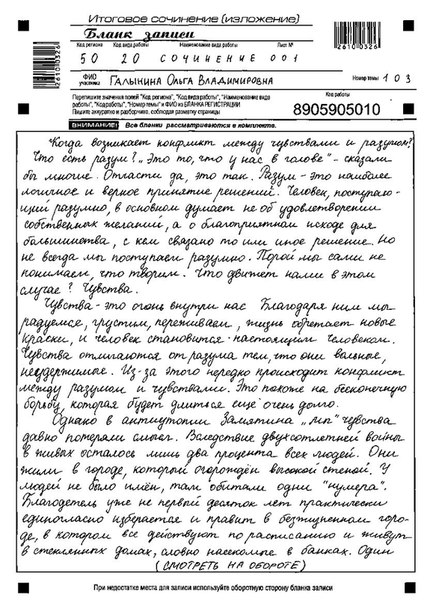 Итоговое сочинение (изложение)
Бланк записи
Код региона Код вида работы Наименование вида работы Лист №
50 20 СОЧИНЕНИЕ 001
26100326
26100326
ФИО участника ГАЛЫНИНА ОЛЬГА ВЛАДИМИРОВНА Номер темы 103
Перепишите значения полей "Код региона", "Код вида работы", "Наименование вида
работы", "Код работы", "Номер темы" и ФИО из БЛАНКА РЕГИСТРАЦИИ
Пишите аккуратно и разборчиво, соблюдая разметку страницы
8905905010
ВНИМАНИЕ! Все бланки рассматриваются в комплекте.
"Когда возникает конфликт между чувствами и разумом?"
"Что есть разум?" "Это то, что у нас в голове" - сказали
бы многие. Отчасти да, это так. Разум - это наиболее
логичное и верное принятие решений. Человек, поступаю-
щий разумно, в основном думает не об удовлетворении
собственных желаний, а о благоприятном исходе для
большинства, с кем связано то или иное решение. Но
не всегда мы поступаем разумно. Порой мы сами не
понимаем, что творим. Что движет нами в этом
случае? Чувства.
Чувства - это огонь внутри нас. Благодаря ним мы
радуемся, грустим, переживаем, жизнь обретает новые
краски, и человек становится настоящим человеком.
Чувства отличаются от разума тем, что они вольные,
неудержимые. Из-за этого нередко происходит конфликт
между разумом и чувствами. Это похоже на бесконечную
борьбу, которая будет длиться ещё очень долго.
Однако в антиутопии Замятина "Мы" чувства
давно потеряли смысл. Вследствие двухсотлетней войны
в живых осталось лишь два процента всех людей. Они
жили в городе, который огорожен высокой стеной. У
людей не было имён, там обитали одни "нумера".
Благодетель уже не первый десяток лет практически
единогласно избирается и правит в безтишенном горо-
де, в котором все действуют по расписанию и живут
в стеклянных домах, словно насекомые в банках. Один
(СМОТРЕТЬ НА ОБОРОТЕ)
При недостатке места для записи используйте оборотную сторону бланка записи